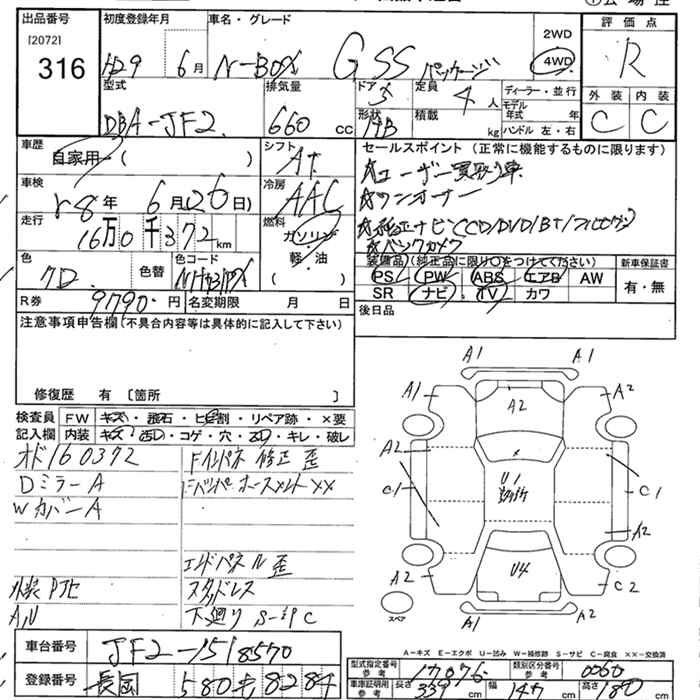 出品番号 初度登録年月 車名・グレード 評価点
[2072]
316
H29 6月 N-BOX G SS パッケージ
2WD
4WD
R
型式 排気量 ドア 定員 ディーラー・並行 外装 内装
DBA-JF2 660cc 5 4人 モデル年式 年
形状 積載 kg ハンドル 左・右 C C
車歴 シフト セールスポイント (正常に機能するものに限ります)
自家用 ( ) AT
☆ユーザー買取り車
車検 冷房 ☆ワンオーナー
r8年 6月26日) AAC
走行 燃料
16万0千372km ガソリン
軽・油
☆バックカメラ
色 色替 色コード ( ) 装備品 (純正品に限り○をつけてください) 新車保証書
PS PW ABS エアB AW 有・無
SR ナビ TV カワ
R券 9790円 名変期限 月 日 後日品
注意事項申告欄(不具合内容等は具体的に記入して下さい)
修復歴 有 〔箇所 〕
検査員 FW キズ・飛石・ヒビ割・リペア跡・×要
記入欄 内装 キズ・汚レ・コゲ・穴・・キレ・破レ
オド160372 Fインパネ 修正 歪
Dミラー A
WカバーA
エンドパネル 歪
スタッドレス
下廻り S-C
A1 A1
A1 A2
A2
A2
C1 U1 C1
A2
A2 U4 C2
A1 A2
スペア
A-キズ E-エクボ U-凹み W-補修跡 S-サビ C-腐食 ××-交換済
車台番号 JF2-1518570
登録番号 580 8284
型式指定番号 参考 類別区分番号 参考 0060
車庫証明用 参考 長さ 339cm 幅 147cm 高さ 180cm